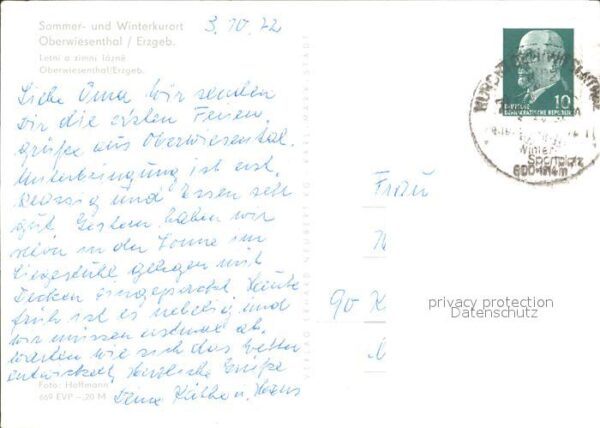 Sommer- und Winterkurort
Oberwiesenthal / Erzgeb.
Letní a zimní lázně
Oberwiesenthal/Erzgeb.
3.10.72
Liebe Oma wir senden
wir die ersten Ferien
grüße aus Oberwiesental.
Unterbringung ist erst
klassig und Essen sehr
gut. Gestern haben wir
schön in der Sonne im
Liegestuhl gelegen mit
Decken eingepackt. Heute
früh ist es neblig und
wir müssen erstmal ab
warten wie sich das Wetter
entwickelt. Herzliche Grüße
Deine Käthe u. Hans
Foto: Hoffmann
669 EVP -,20 M
VERLAG ERHARD NEUBERT KG KARL-MARX-STADT
10
DEUTSCHE
DEMOKRATISCHE REPUBLIK
KURORT
Winter
Sportplatz
Frau
90
privacy protection
Datenschutz